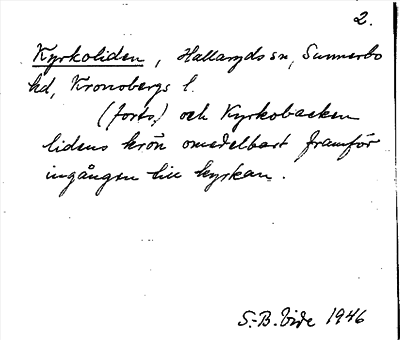 2.
Kyrkoliden, Hallaryds sn, Sunnerbo
hd, Kronobergs l.
(forts,) och Kyrkobacken
lidens krön omedelbart framför
ingången till kyrkan.
S.-B. Vide 1946